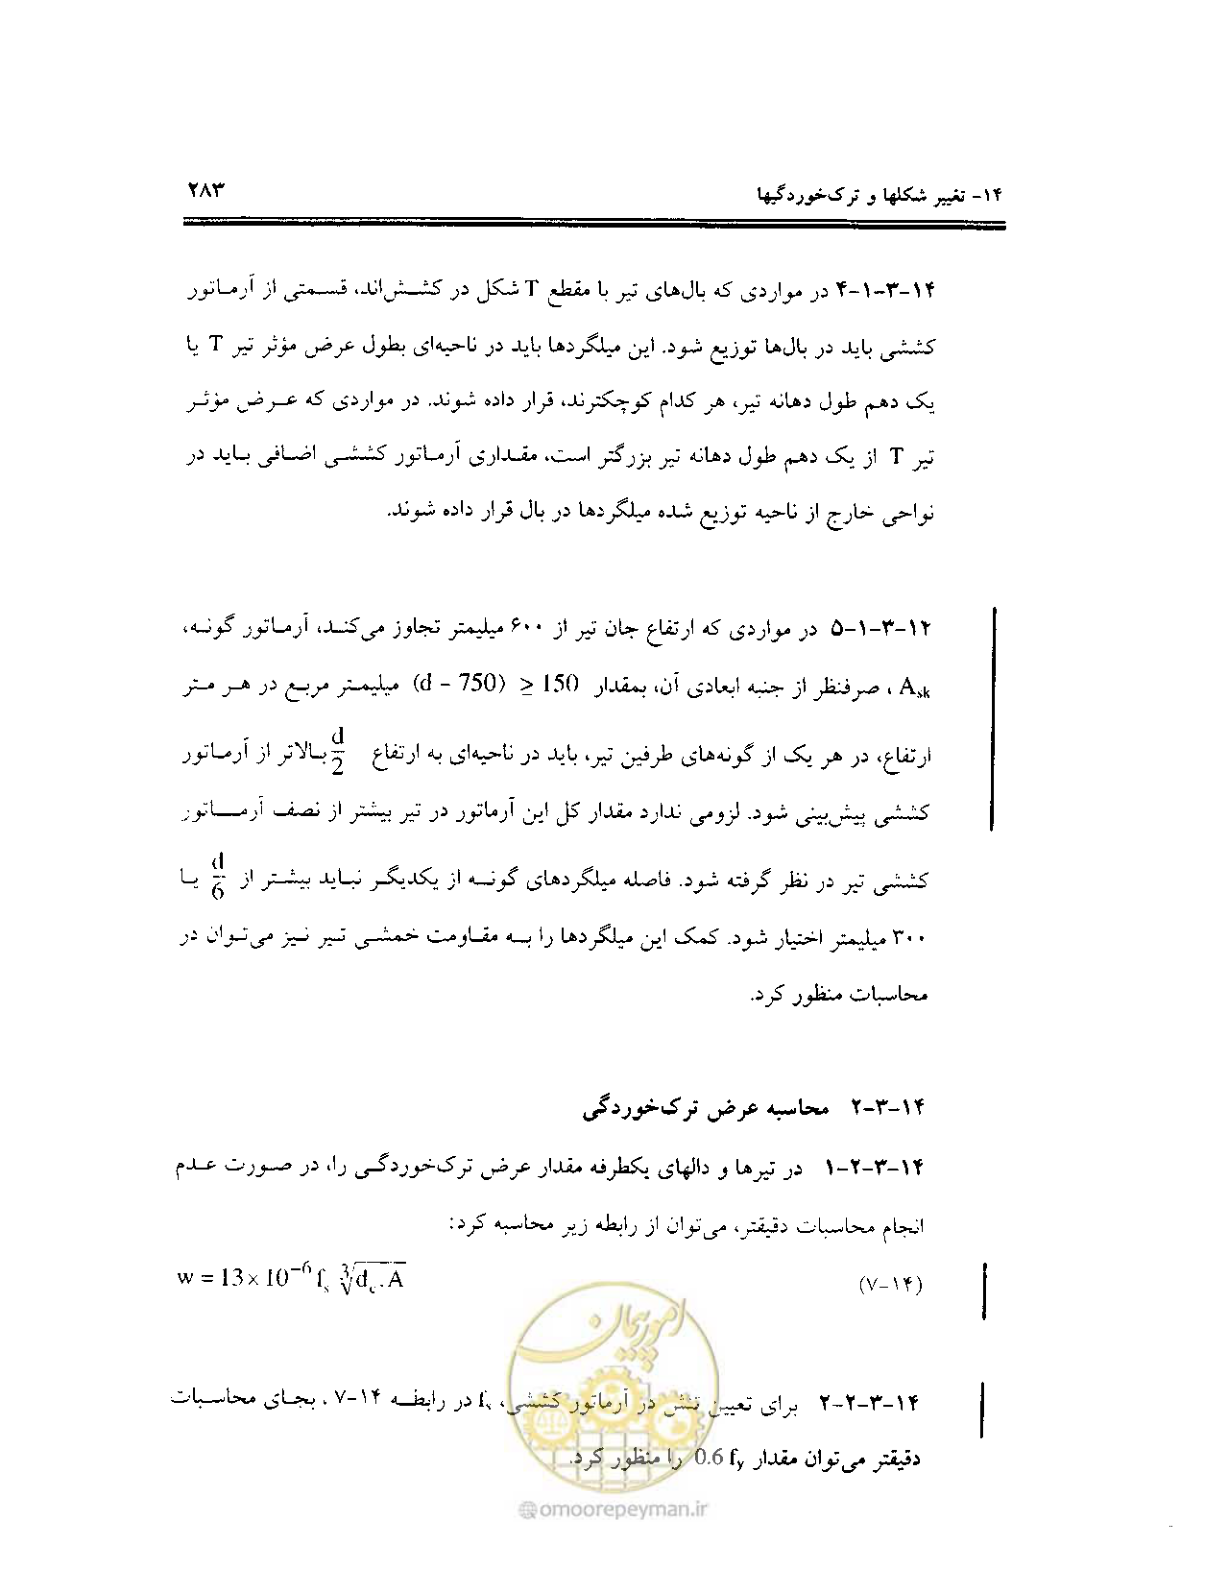 ۱۴- تغییر شکلها و ترک‌خوردگیها ۲۸۳
۱۴-۳-۱-۴ در مواردی که بال‌های تیر با مقطع T شکل در کشش‌اند، قسمتی از آرماتور
کششی باید در بال‌ها توزیع شود. این میلگردها باید در ناحیه‌ای بطول عرض مؤثر تیر T یا
یک دهم طول دهانه تیر، هر کدام کوچکترند، قرار داده شوند. در مواردی که عرض مؤثر
تیر T از یک دهم طول دهانه تیر بزرگتر است، مقداری آرماتور کششی اضافی باید در
نواحی خارج از ناحیه توزیع شده میلگردها در بال قرار داده شوند.
۱۲-۳-۱-۵ در مواردی که ارتفاع جان تیر از ۶۰۰ میلیمتر تجاوز می‌کند، آرماتور گونه،
Ask ، صرفنظر از جنبه ابعادی آن، بمقدار (d - 750) ≥ 150 میلیمتر مربع در هر متر
ارتفاع، در هر یک از گونه‌های طرفین تیر، باید در ناحیه‌ای به ارتفاع d/2 بالاتر از آرماتور
کششی پیش‌بینی شود. لزومی ندارد مقدار کل این آرماتور در تیر بیشتر از نصف آرماتور
کششی تیر در نظر گرفته شود. فاصله میلگردهای گونه از یکدیگر نباید بیشتر از d/6 یا
۳۰۰ میلیمتر اختیار شود. کمک این میلگردها را به مقاومت خمشی تیر نیز می‌توان در
محاسبات منظور کرد.
۱۴-۳-۲ محاسبه عرض ترک‌خوردگی
۱۴-۳-۲-۱ در تیرها و دالهای یکطرفه مقدار عرض ترک‌خوردگی را، در صورت عدم
انجام محاسبات دقیقتر، می‌توان از رابطه زیر محاسبه کرد:
(۱۴-۷) w = 13 × 10⁻⁶ fs ∛(dc.A)
۱۴-۳-۲-۲ برای تعیین تنش در آرماتور کششی، fs در رابطه ۱۴-۷ ، بجای محاسبات
دقیقتر می‌توان مقدار 0.6 fy را منظور کرد.
امور پیمان
@omoorepeyman.ir